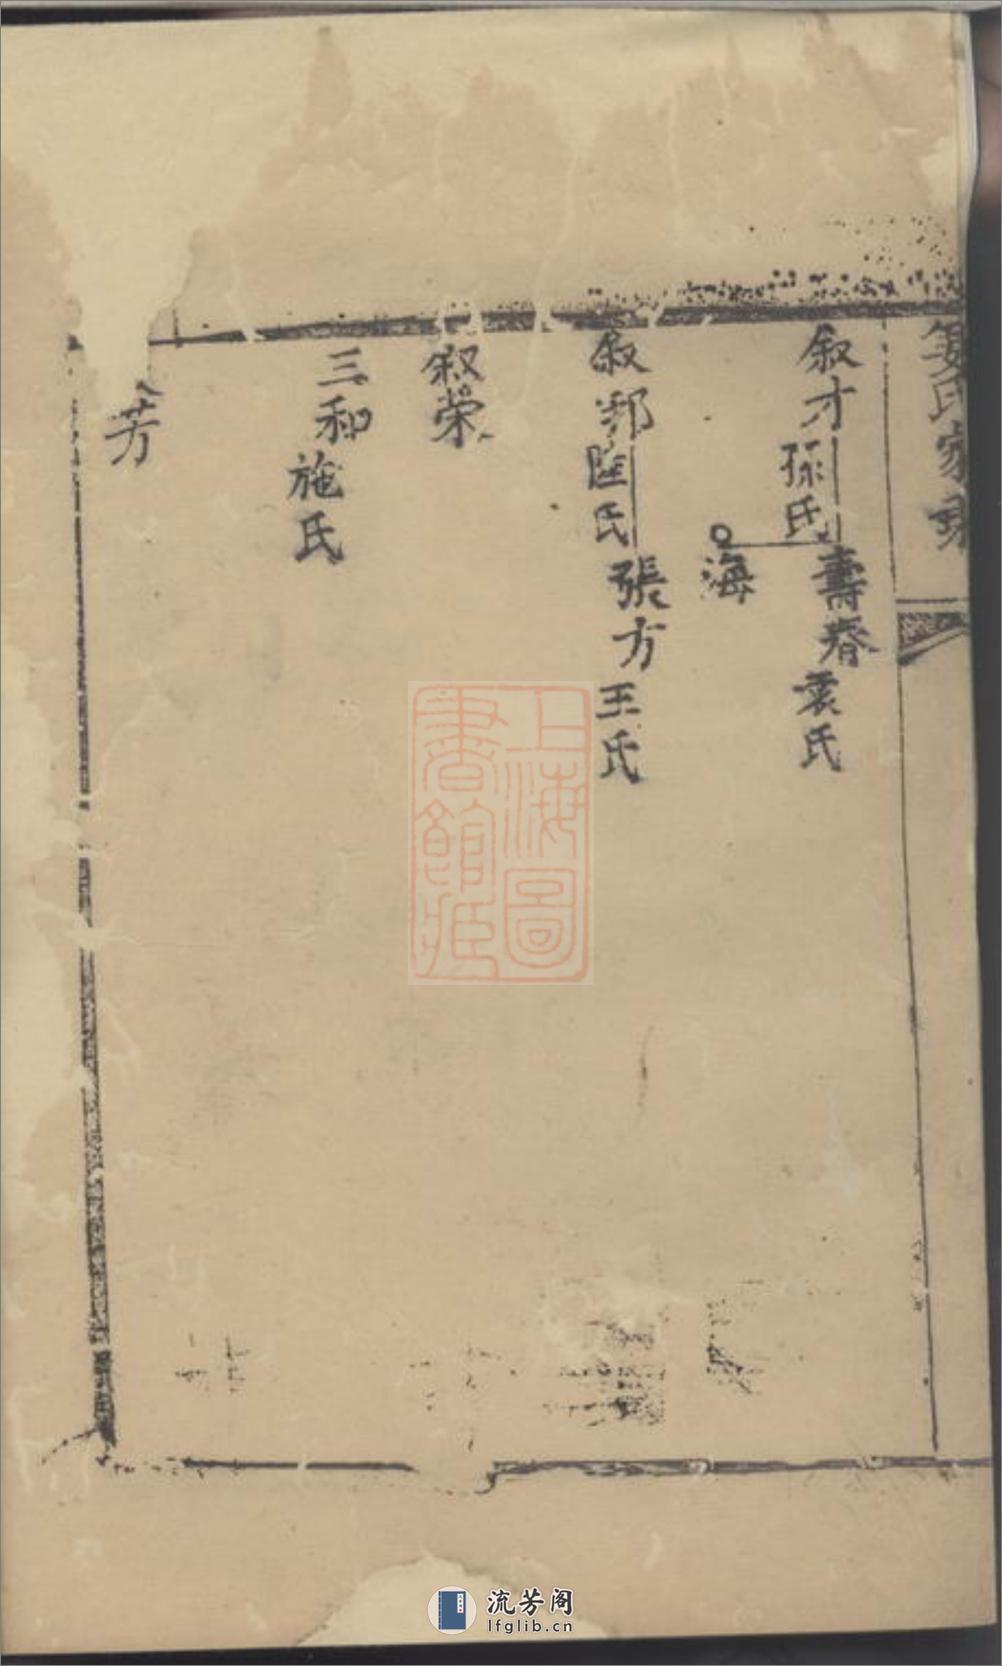 姜氏家乘
叙才
孫氏
壽春
袁氏
海
叙邦
匡氏
張方
王氏
叙榮
三和
施氏
芳
上海圖
書館藏
流芳阁
lfglib.cn